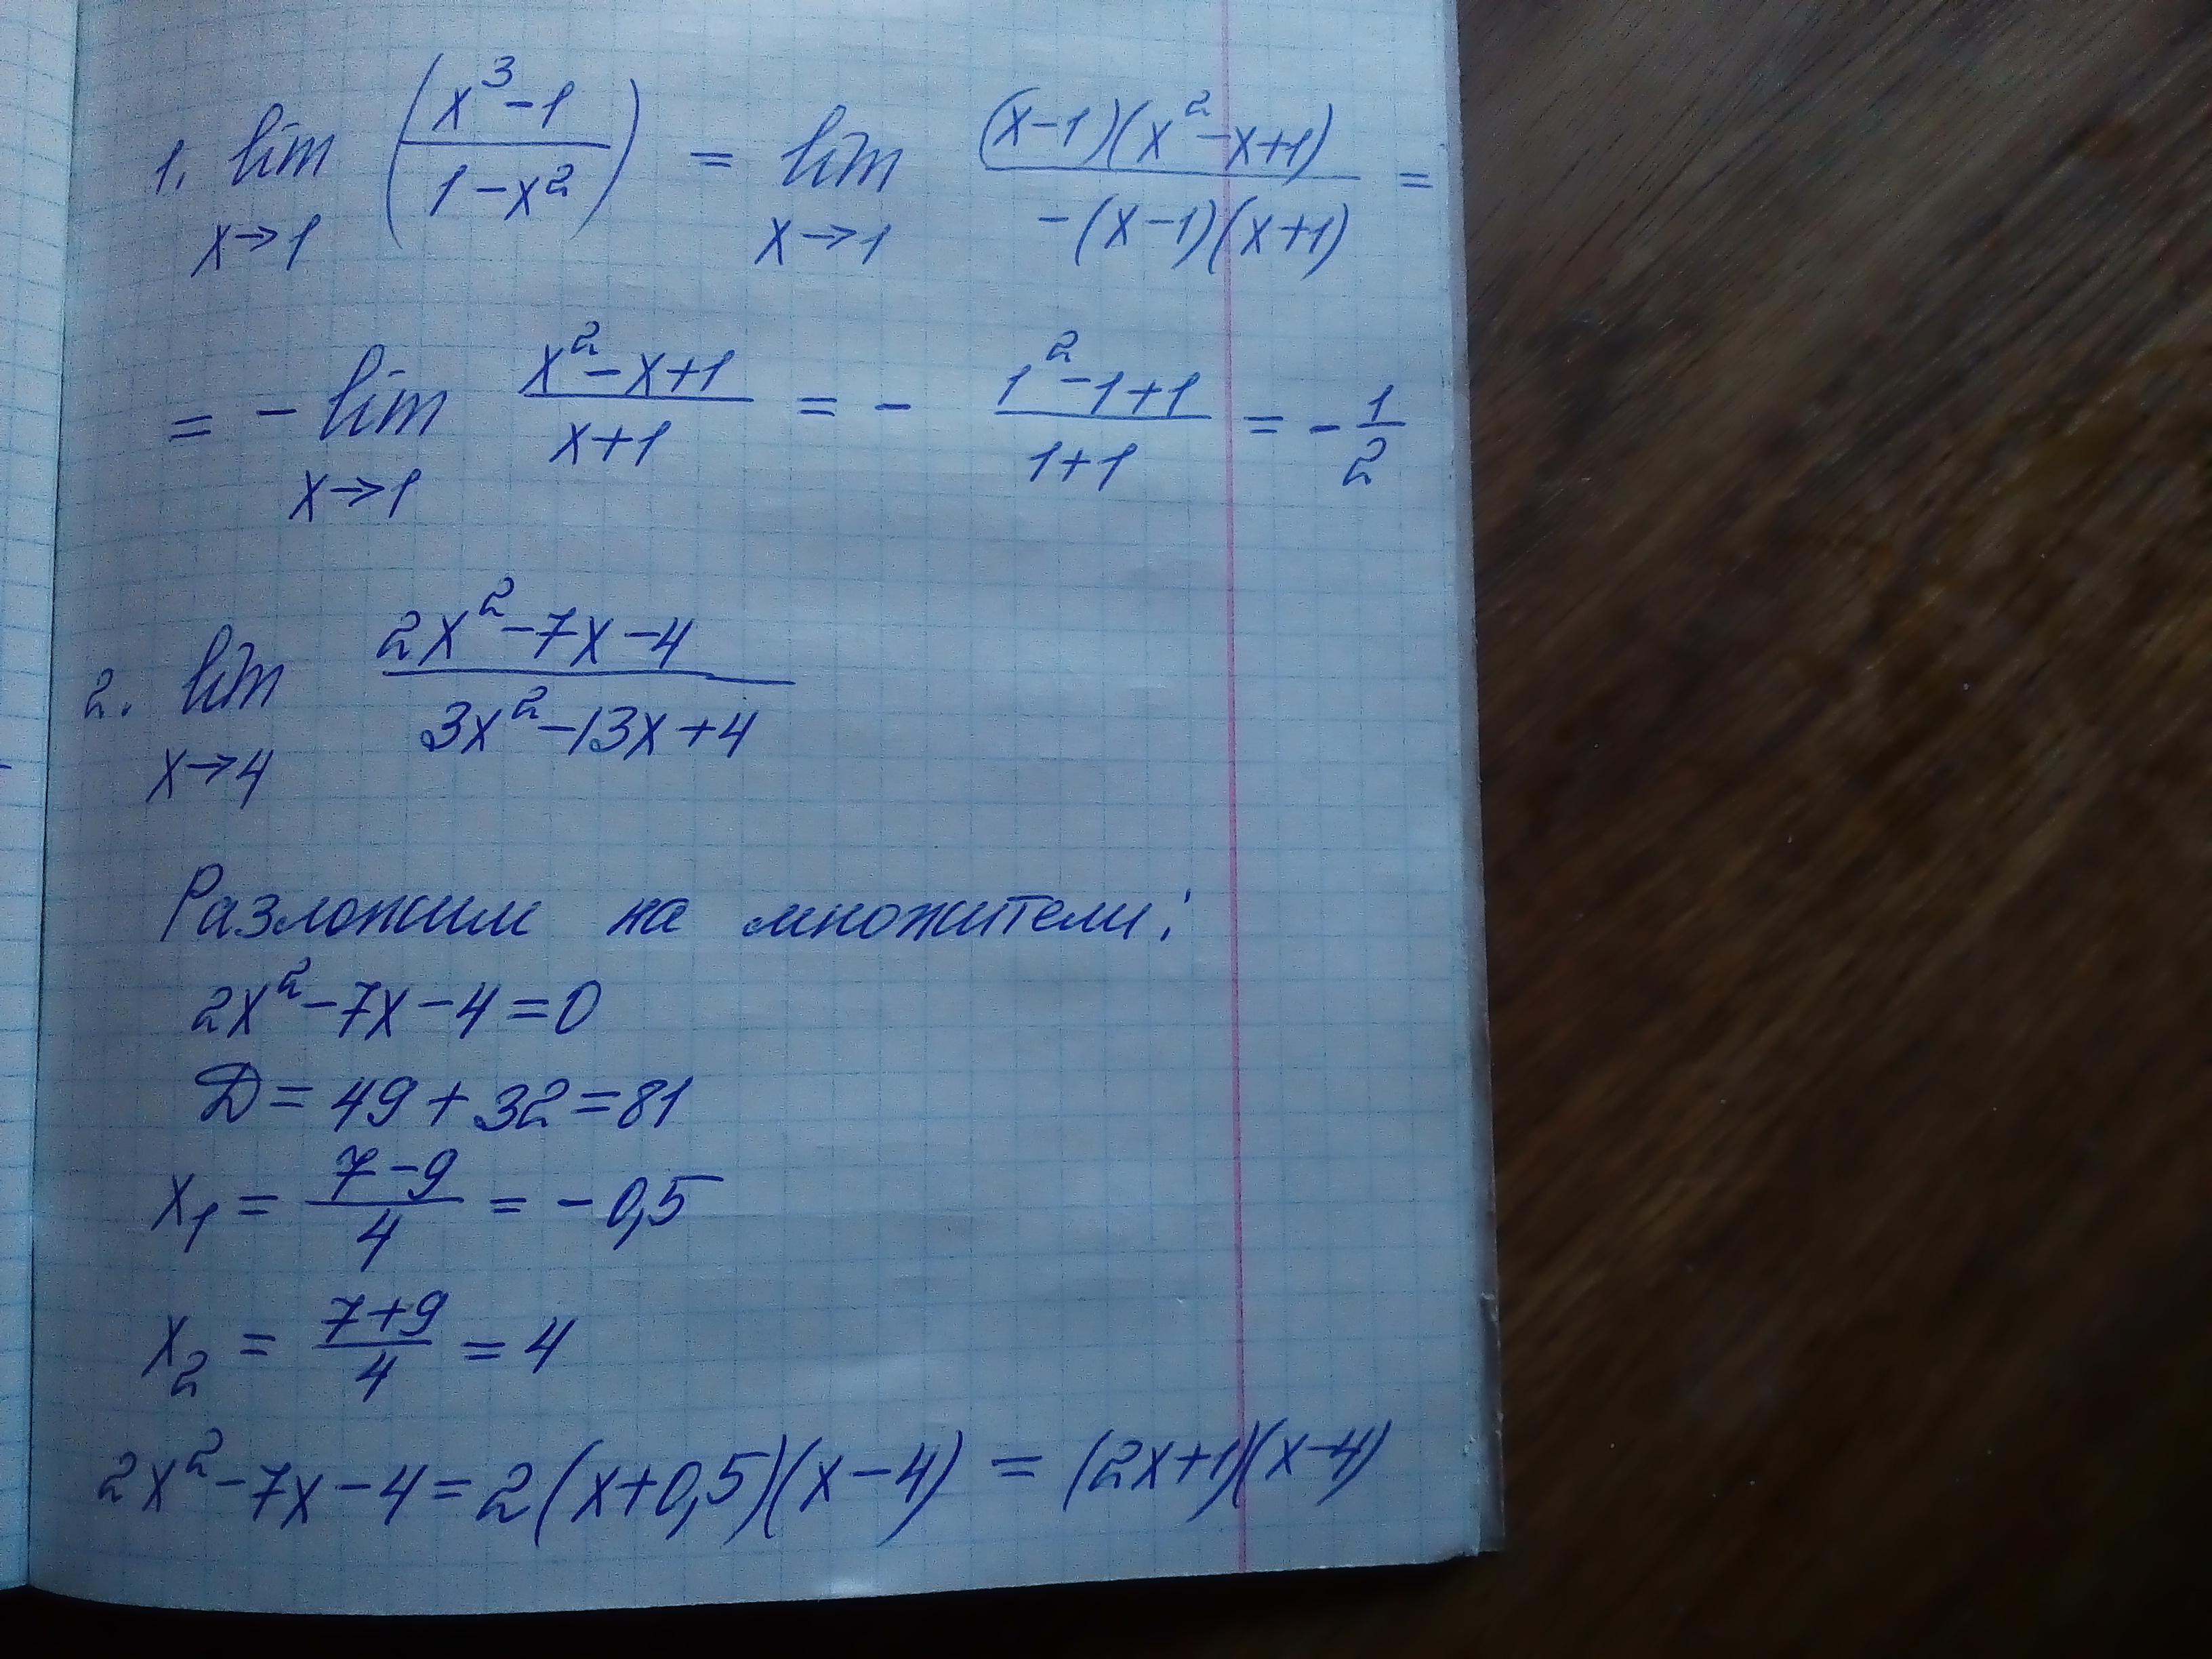 1. lim (x³-1 / 1-x²) = lim (x-1)(x²-x+1) / -(x-1)(x+1) =
x→1 x→1
= - lim x²-x+1 / x+1 = - 1²-1+1 / 1+1 = - 1/2
x→1
2. lim 2x²-7x-4 / 3x²-13x+4
x→4
Разложим на множители:
2x²-7x-4=0
D=49+32=81
x₁ = 7-9 / 4 = -0,5
x₂ = 7+9 / 4 = 4
2x²-7x-4=2(x+0,5)(x-4) = (2x+1)(x-4)